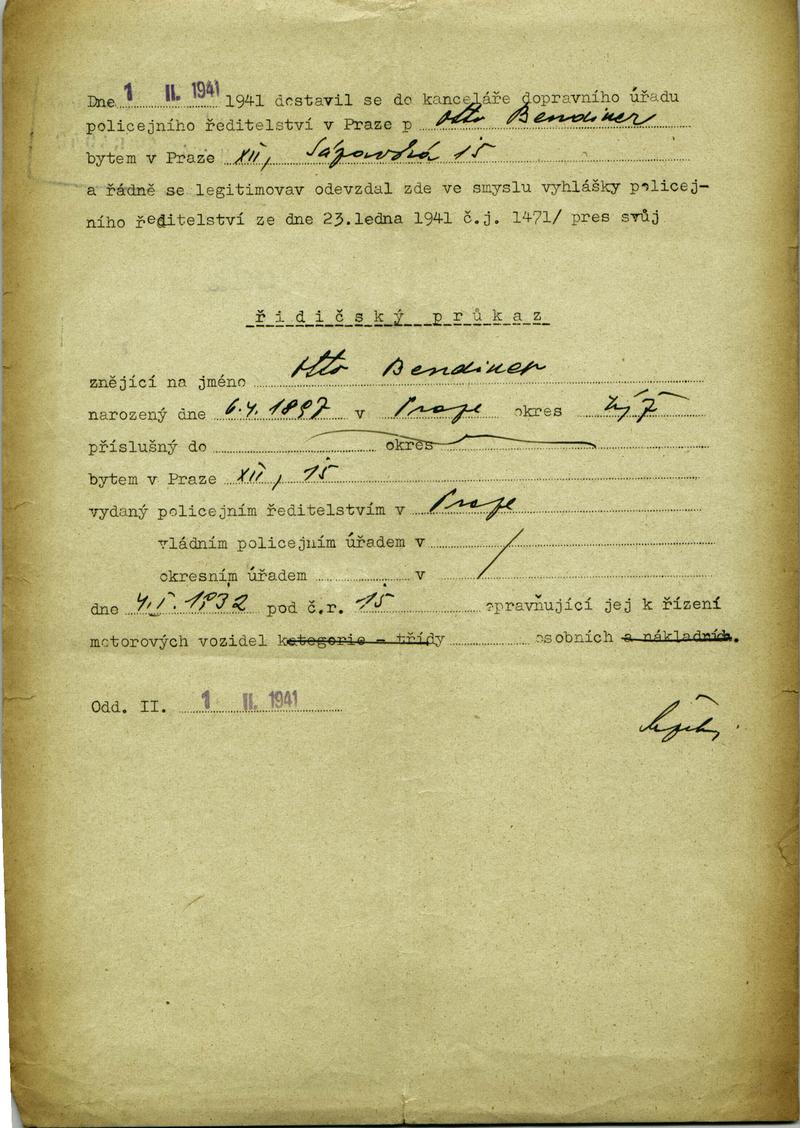 Dne 1 II. 1941 1941 dostavil se do kanceláře dopravního úřadu
policejního ředitelství v Praze p Otto Bendiner
bytem v Praze XII, Sázavská 15
a řádně se legitimovav odevzdal zde ve smyslu vyhlášky policej-
ního ředitelství ze dne 23.ledna 1941 č.j. 1471/ pres svůj
řidičský průkaz
znějící na jméno Otto Bendiner
narozený dne 6.4.1897 v Praze okres
příslušný do okres
bytem v Praze XII, 15
vydaný policejním ředitelstvím v Praze
vládním policejním úřadem v
okresním úřadem v
dne 4.I.1932 pod č.r. 15 opravňující jej k řízení
motorových vozidel kategorie - třídy osobních a nákladních.
Odd. II. 1 II. 1941